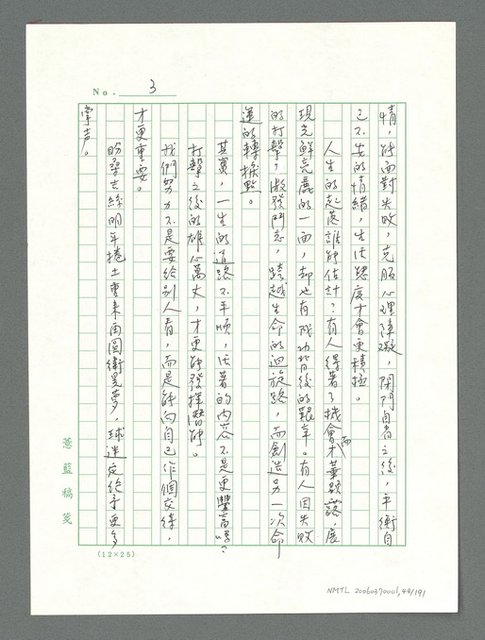 No. 3
情，能面對失敗，克服心理障礙，閉門自省之後，平衡自
己不安的情緒，生活態度才會更積極。
人生的起落誰能估計？有人得著了機會而才華顯露，展
現光鮮亮麗的一面，却也有成功背後的艱辛。有人因失敗
的打擊，激發鬥志，跨越生命的迴旋路，而創造另一次命
運的轉捩點。
其實，一生的道路不平順，活著的內容不是更豐富嗎？
打擊之後的雄心萬丈，才更能發揮潛能。
我們努力不是要給別人看，而是能向自己作個交待，
才更重要。
盼辜去絲明年捲土重來南圓衛冕夢，球迷定給予更多
掌声。
薏藍稿箋
(12×25)
NMTL 20060370001, 49/191